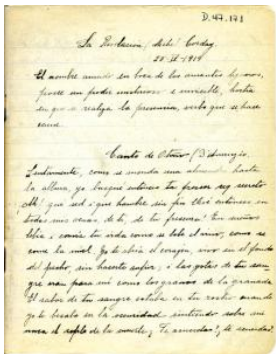 D.47.171
La Revelacion / Michel Corday
20-IX-1919
El nombre amado en boca de los amantes dejaron,
posee un poder misterioso e invencible, hasta
en que se realiza la presencia, verbo que se hace
carne.
Canto de Otoño / D'Annunzio.
Lentamente, como se monda una almendra hasta
la albura, yo busqué entonces tu frescor más secreto
Ah! que sed i que hambre sin fin llevé entonces en
todas mis venas, de ti, de tu frescura! En sueños
bebía i comía tu vida como se bebe el vino, como se
come la miel. Yo te abrí el corazón, vivo en el fondo
del pecho, sin hacerte sufrir, i las gotas de tu san
gre eran para mí como los granos de la granada.
El sabor de tu sangre estaba en tu rostro cuando
yo te besaba en la oscuridad sintiendo sobre mi
nuca el soplo de la muerte. ¿Te acuerdas? ¿te acuerdas?